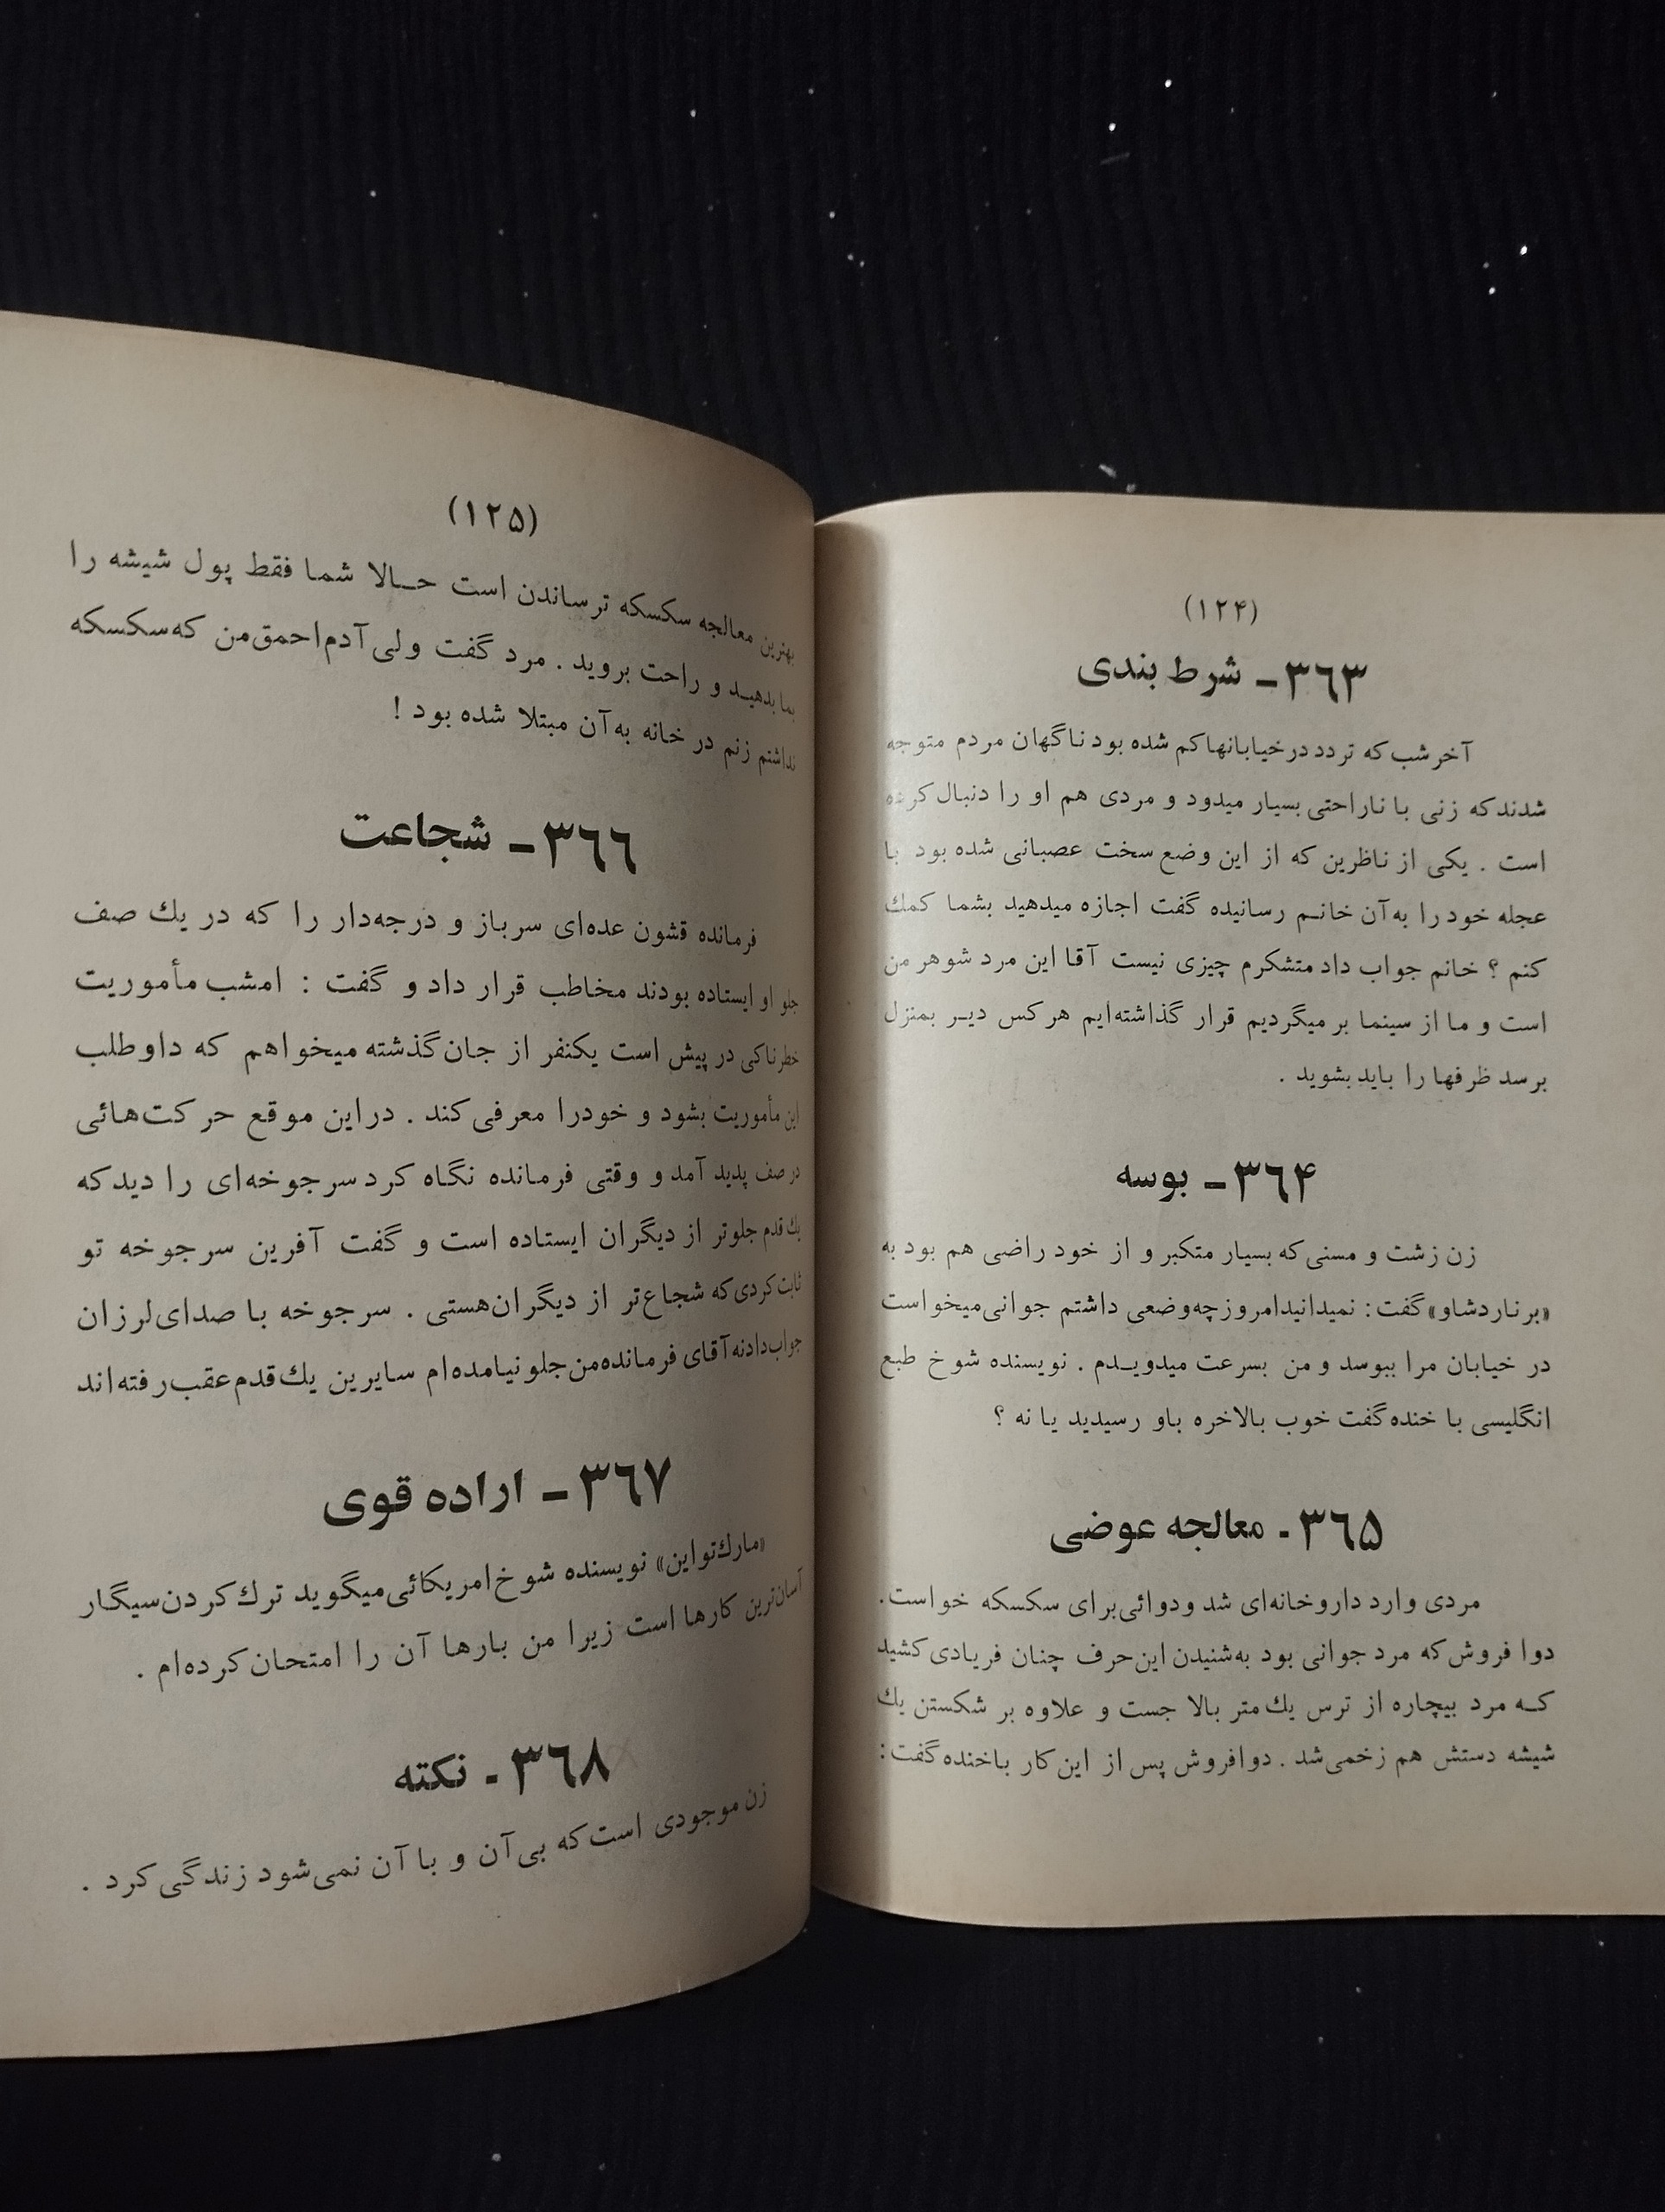 (۱۲۴)
۳٦۳ـ شرط بندی
آخرشب که تردد درخیابانها کم شده بود ناگهان مردم متوجه
شدند که زنی با ناراحتی بسیار میدود و مردی هم او را دنبال کرده
است . یکی از ناظرین که از این وضع سخت عصبانی شده بود با
عجله خود را به آن خانـم رسانیده گفت اجازه میدهید بشما کمك
کنم ؟ خانم جواب داد متشکرم چیزی نیست آقا این مرد شوهر من
است و ما از سینما بر میگردیم قرار گذاشته‌ایم هر کس دیـر بمنزل
برسد ظرفها را باید بشوید .
۳٦۴ـ بوسه
زن زشت و مسنی که بسیار متکبر و از خود راضی هم بود به
«برناردشاو» گفت : نمیدانید امروز چه وضعی داشتم جوانی میخواست
در خیابان مرا ببوسد و من بسرعت میدویـدم . نویسنده شوخ طبع
انگلیسی با خنده گفت خوب بالاخره باو رسیدید یا نه ؟
۳٦۵ـ معالجه عوضی
مردی وارد داروخانه‌ای شد و دوائی برای سکسکه خواست.
دوا فروش که مرد جوانی بود به شنیدن این حرف چنان فریادی کشید
کـه مرد بیچاره از ترس یك متر بالا جست و علاوه بر شکستن یك
شیشه دستش هم زخمی شد . دوافروش پس از این کار باخنده گفت :
(۱۲۵)
بهترین معالجه سکسکه ترساندن است حـالا شما فقط پول شیشه را
بما بدهیـد و راحت بروید . مرد گفت ولی آدم احمق من که سکسکه
نداشتم زنم در خانه به آن مبتلا شده بود !
۳٦٦ـ شجاعت
فرمانده قشون عده‌ای سرباز و درجه‌دار را که در یك صف
جلو او ایستاده بودند مخاطب قرار داد و گفت : امشب مأموریت
خطرناکی در پیش است یکنفر از جان گذشته میخواهم که داوطلب
این مأموریت بشود و خودرا معرفی کند . دراین موقع حرکت‌هائی
در صف پدید آمد و وقتی فرمانده نگاه کرد سرجوخه‌ای را دید که
یك قدم جلوتر از دیگران ایستاده است و گفت آفرین سرجوخه تو
ثابت کردی که شجاع‌تر از دیگران هستی . سرجوخه با صدای لرزان
جواب داد نه آقای فرمانده من جلو نیامده‌ام سایرین یك قدم عقب رفته‌اند
۳٦۷ـ اراده قوی
«مارك تواین» نویسنده شوخ امریکائی میگوید ترك کردن سیگار
آسان‌ترین کارها است زیرا من بارها آن را امتحان کرده‌ام .
۳٦۸ـ نکته
زن موجودی است که بی آن و با آن نمی‌شود زندگی کرد .